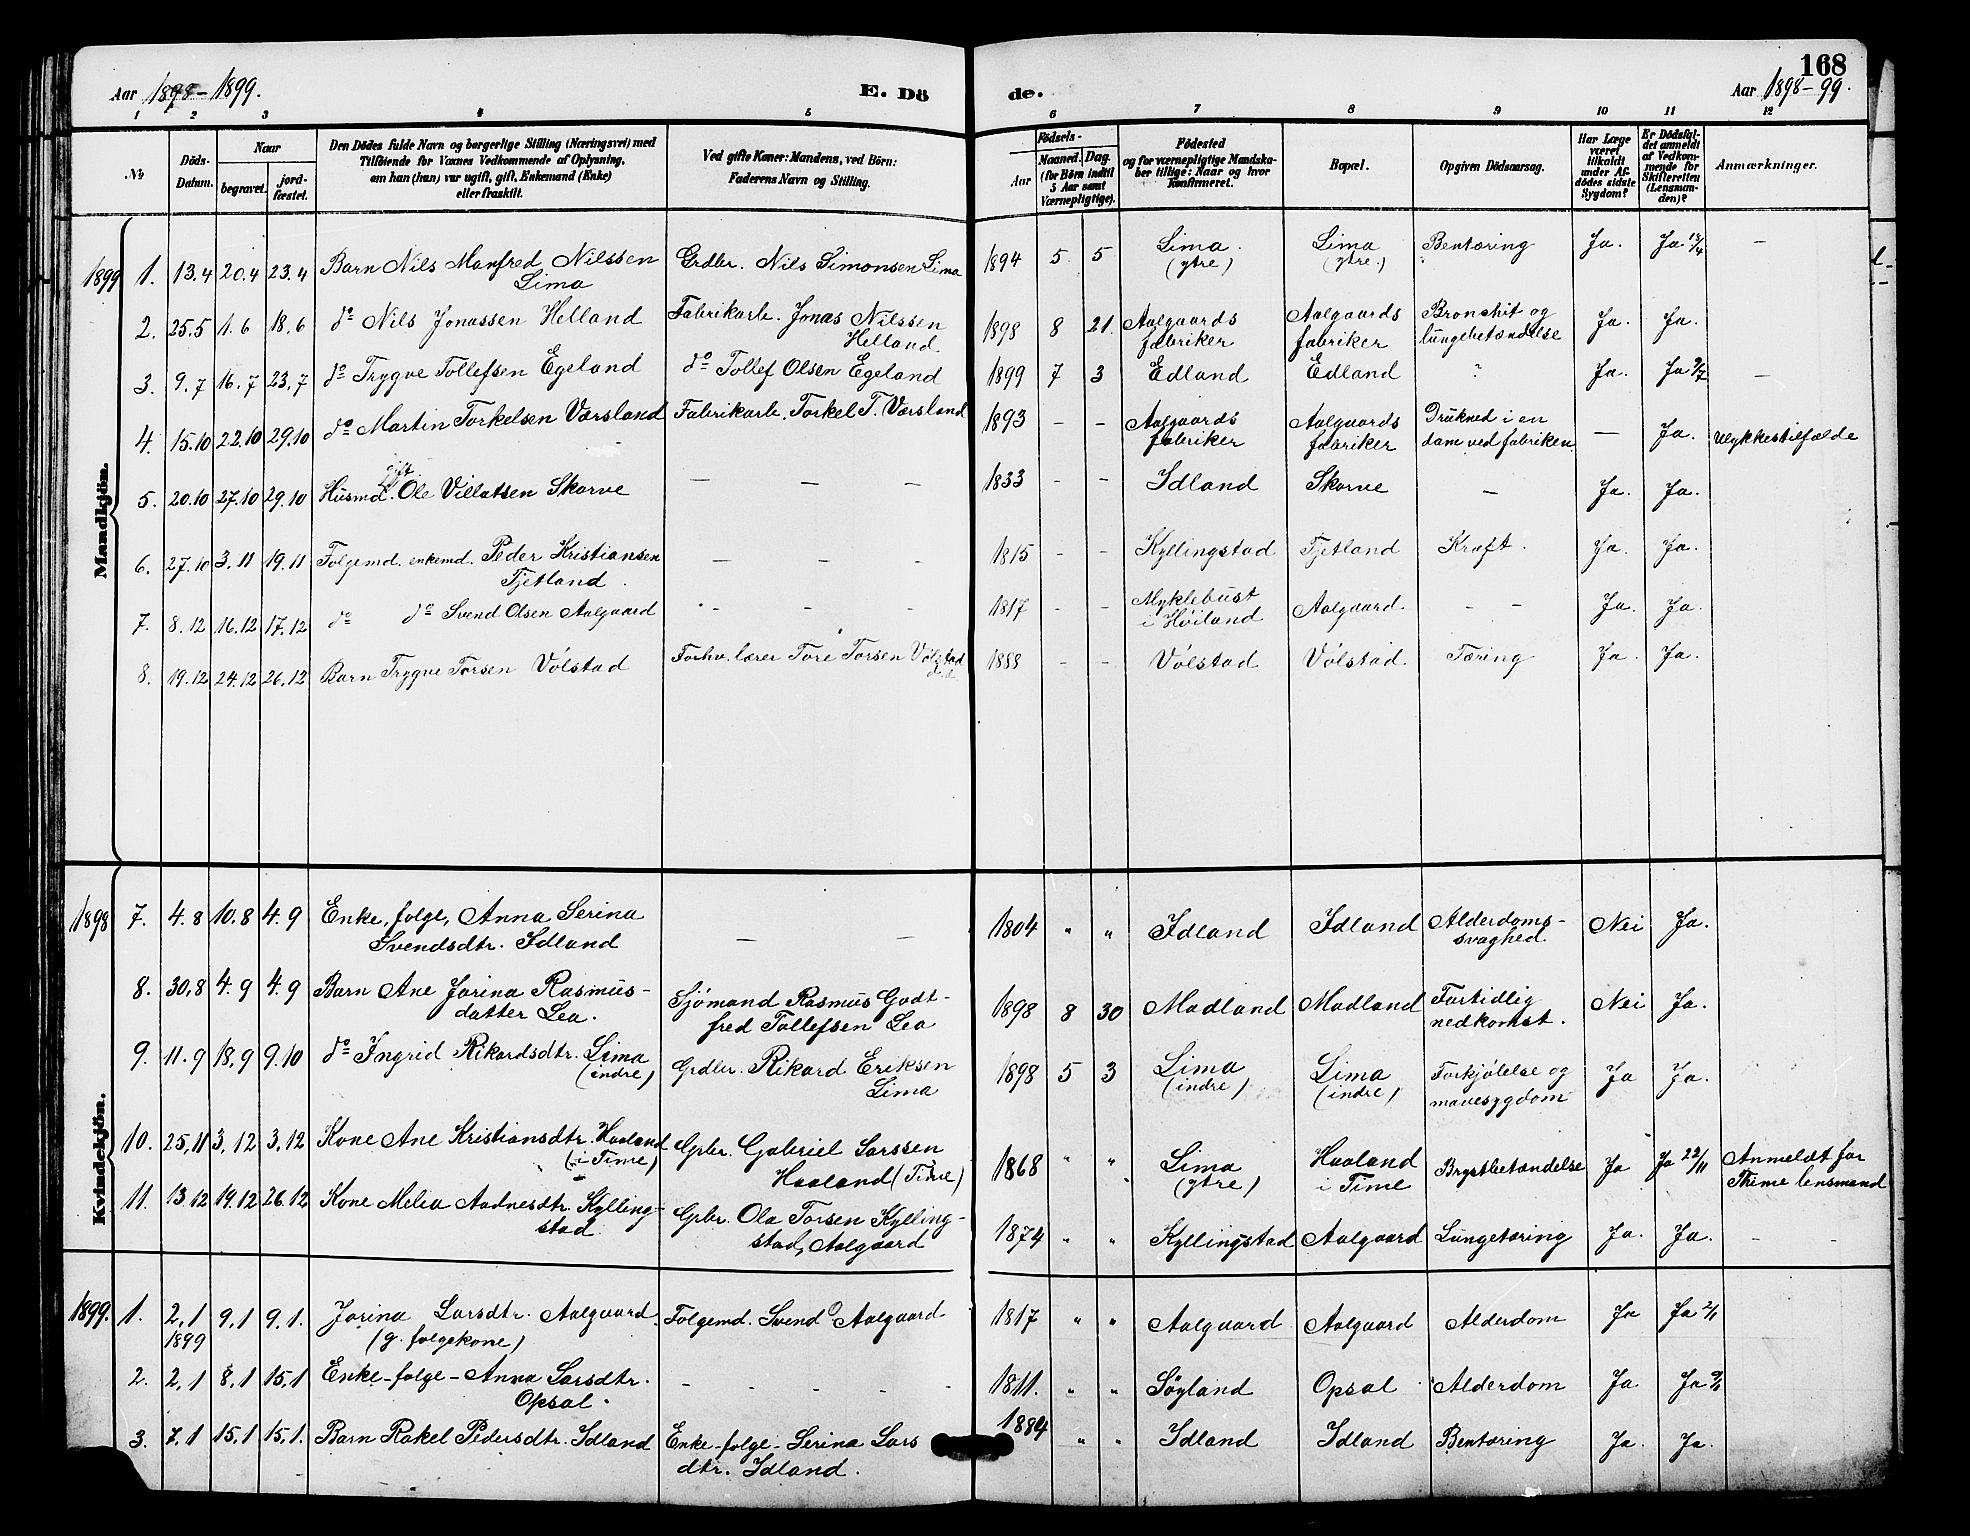 168
Aar 1898-1899. E. Dö de. Aar 1898-99.
1 2 3 4 5 6 7 8 9 10 11 12
№ Döds-Datum. Naar begravet. jord-fæstet. Den Dödes fulde Navn og borgerlige Stilling (Næringsvei) med Tilföiende for Voxnes Vedkommende af Oplysning, om han (hun) var ugift, gift, Enkemand (Enke) eller fraskilt. Ved gifte Koner: Mandens, ved Börn: Faderens Navn og Stilling. Födsels- Aar Maaned. Dag. (for Börn indtil 5 Aar samt Værnepligtige). Födested og for værnepligtige Mandska-ber tillige: Naar og hvor Konfirmeret. Bopæl. Opgiven Dödsaarsag. Har Læge været tilkaldt under Af-dödes sidste Sygdom? Er Dödsfal-det anmeldt af Vedkom-mende for Skifteretten (Lensman-den)? Anmærkninger.
Mandkjön.
1899 1. 13.4 20.4 23.4 Barn Nils Manfred Nilssen Lima Grdbr. Nils Simonsen Lima 1894 5 5 Lima (ytre) Lima (ytre.) Bentæring Ja. Ja 14/4 —
2. 25.5 1.6 18.6 do Nils Jonassen Helland Fabrikarb. Jonas Nilssen Helland 1898 8 21. Aalgaards fabriker Aalgaards fabriker Bronchit og lungebetændelse Ja. Ja.
3. 9.7 16.7 23.7 do Trygve Tollefsen Egeland do Tollef Olsen Egeland 1899 7 3 Edland Edland ? Ja. Ja 9/7 —
4. 15.10 22.10 29.10 do Martin Torkelsen Værsland Fabrikarb. Torkel T. Værsland 1893 - - Aalgaards fabriker Aalgaards fabriker Drukned i en dam ved fabriken — Ja. Ulykkestilfælde
5. 20.10 27.10 29.10 Husmd. gift Ole Villatsen Skorve — — — 1833 - - Idland Skorve — Ja. Ja.
6. 27.10 3.11 19.11 Folgemd. enkemd. Peder Kristiansen Tjetland. — — - 1815 - - Kyllingstad Tjetland Kræft. Ja. Ja.
7. 8.12 16.12 17.12 do do Svend Olsen Aalgaard - - - 1817 - - Myklebust i Høiland Aalgaard. - - Ja. Ja.
8. 19.12 24.12 26.12 Barn Trygve Torsen Vølstad Forhv. lærer Tore Torsen Vølstad 1888 - - Vølstad Vølstad. Tæring Ja. Ja.
Kvindekjön.
1898 7. 4.8 10.8 4.9 Enke, folge, Anna Serina Svendsdtr. Idland — — 1804 " " Idland Idland Alderdoms-svaghed. Nei Ja.
8. 30.8 4.9 4.9 Barn Ane Jorina Rasmus-datter Lea. Sjømand Rasmus Godt-fred Tollefsen Lea 1898 8 30 Madland Madland Fortidlig nedkomst. Nei Ja.
9. 11.9 18.9 9.10 do Ingrid Rikardsdtr. Lima (indre) Grdbr. Rikard Eriksen Lima 1898 5 3 Lima (indre) Lima (indre) Forkjølelse og mavesygdom Ja Ja.
10. 25.11 3.12 3.12 Kone Ane Kristiansdtr. Haaland (i Time) Grbr. Gabriel Larssen Haaland (Time) 1868 " " Lima (ytre) Haaland i Time Brystbetændelse Ja Ja 22/11 Anmeldt for Thime lensmand
11. 13.12 19.12 26.12 Kone Melea Aadnesdtr. Kylling-stad. Grbr. Ola Torsen Kylling-stad, Aalgaard 1874 " " Kyllingstad Aalgaard Lungetæring Ja. Ja. - -
1899. 1. 2.1 1899 9.1 9.1. Jorina Larsdtr. Aalgaard. (g. folgekone) Folgemd. Svend O Aalgaard 1817 " " Aalgaard Aalgaard Alderdom Ja Ja 2/1
2. 2.1 8.1 15.1 Enke-folge- Anna Larsdtr. Opsal. - - - - - 1811. " " Søyland Opsal Alderdom Ja Ja
3. 7.1 15.1 15.1. Barn Rakel Pedersdtr. Idland Enke-folge- Serina Lars dtr. Idland. 1884 " " Idland Idland Bentæring Ja. Ja.